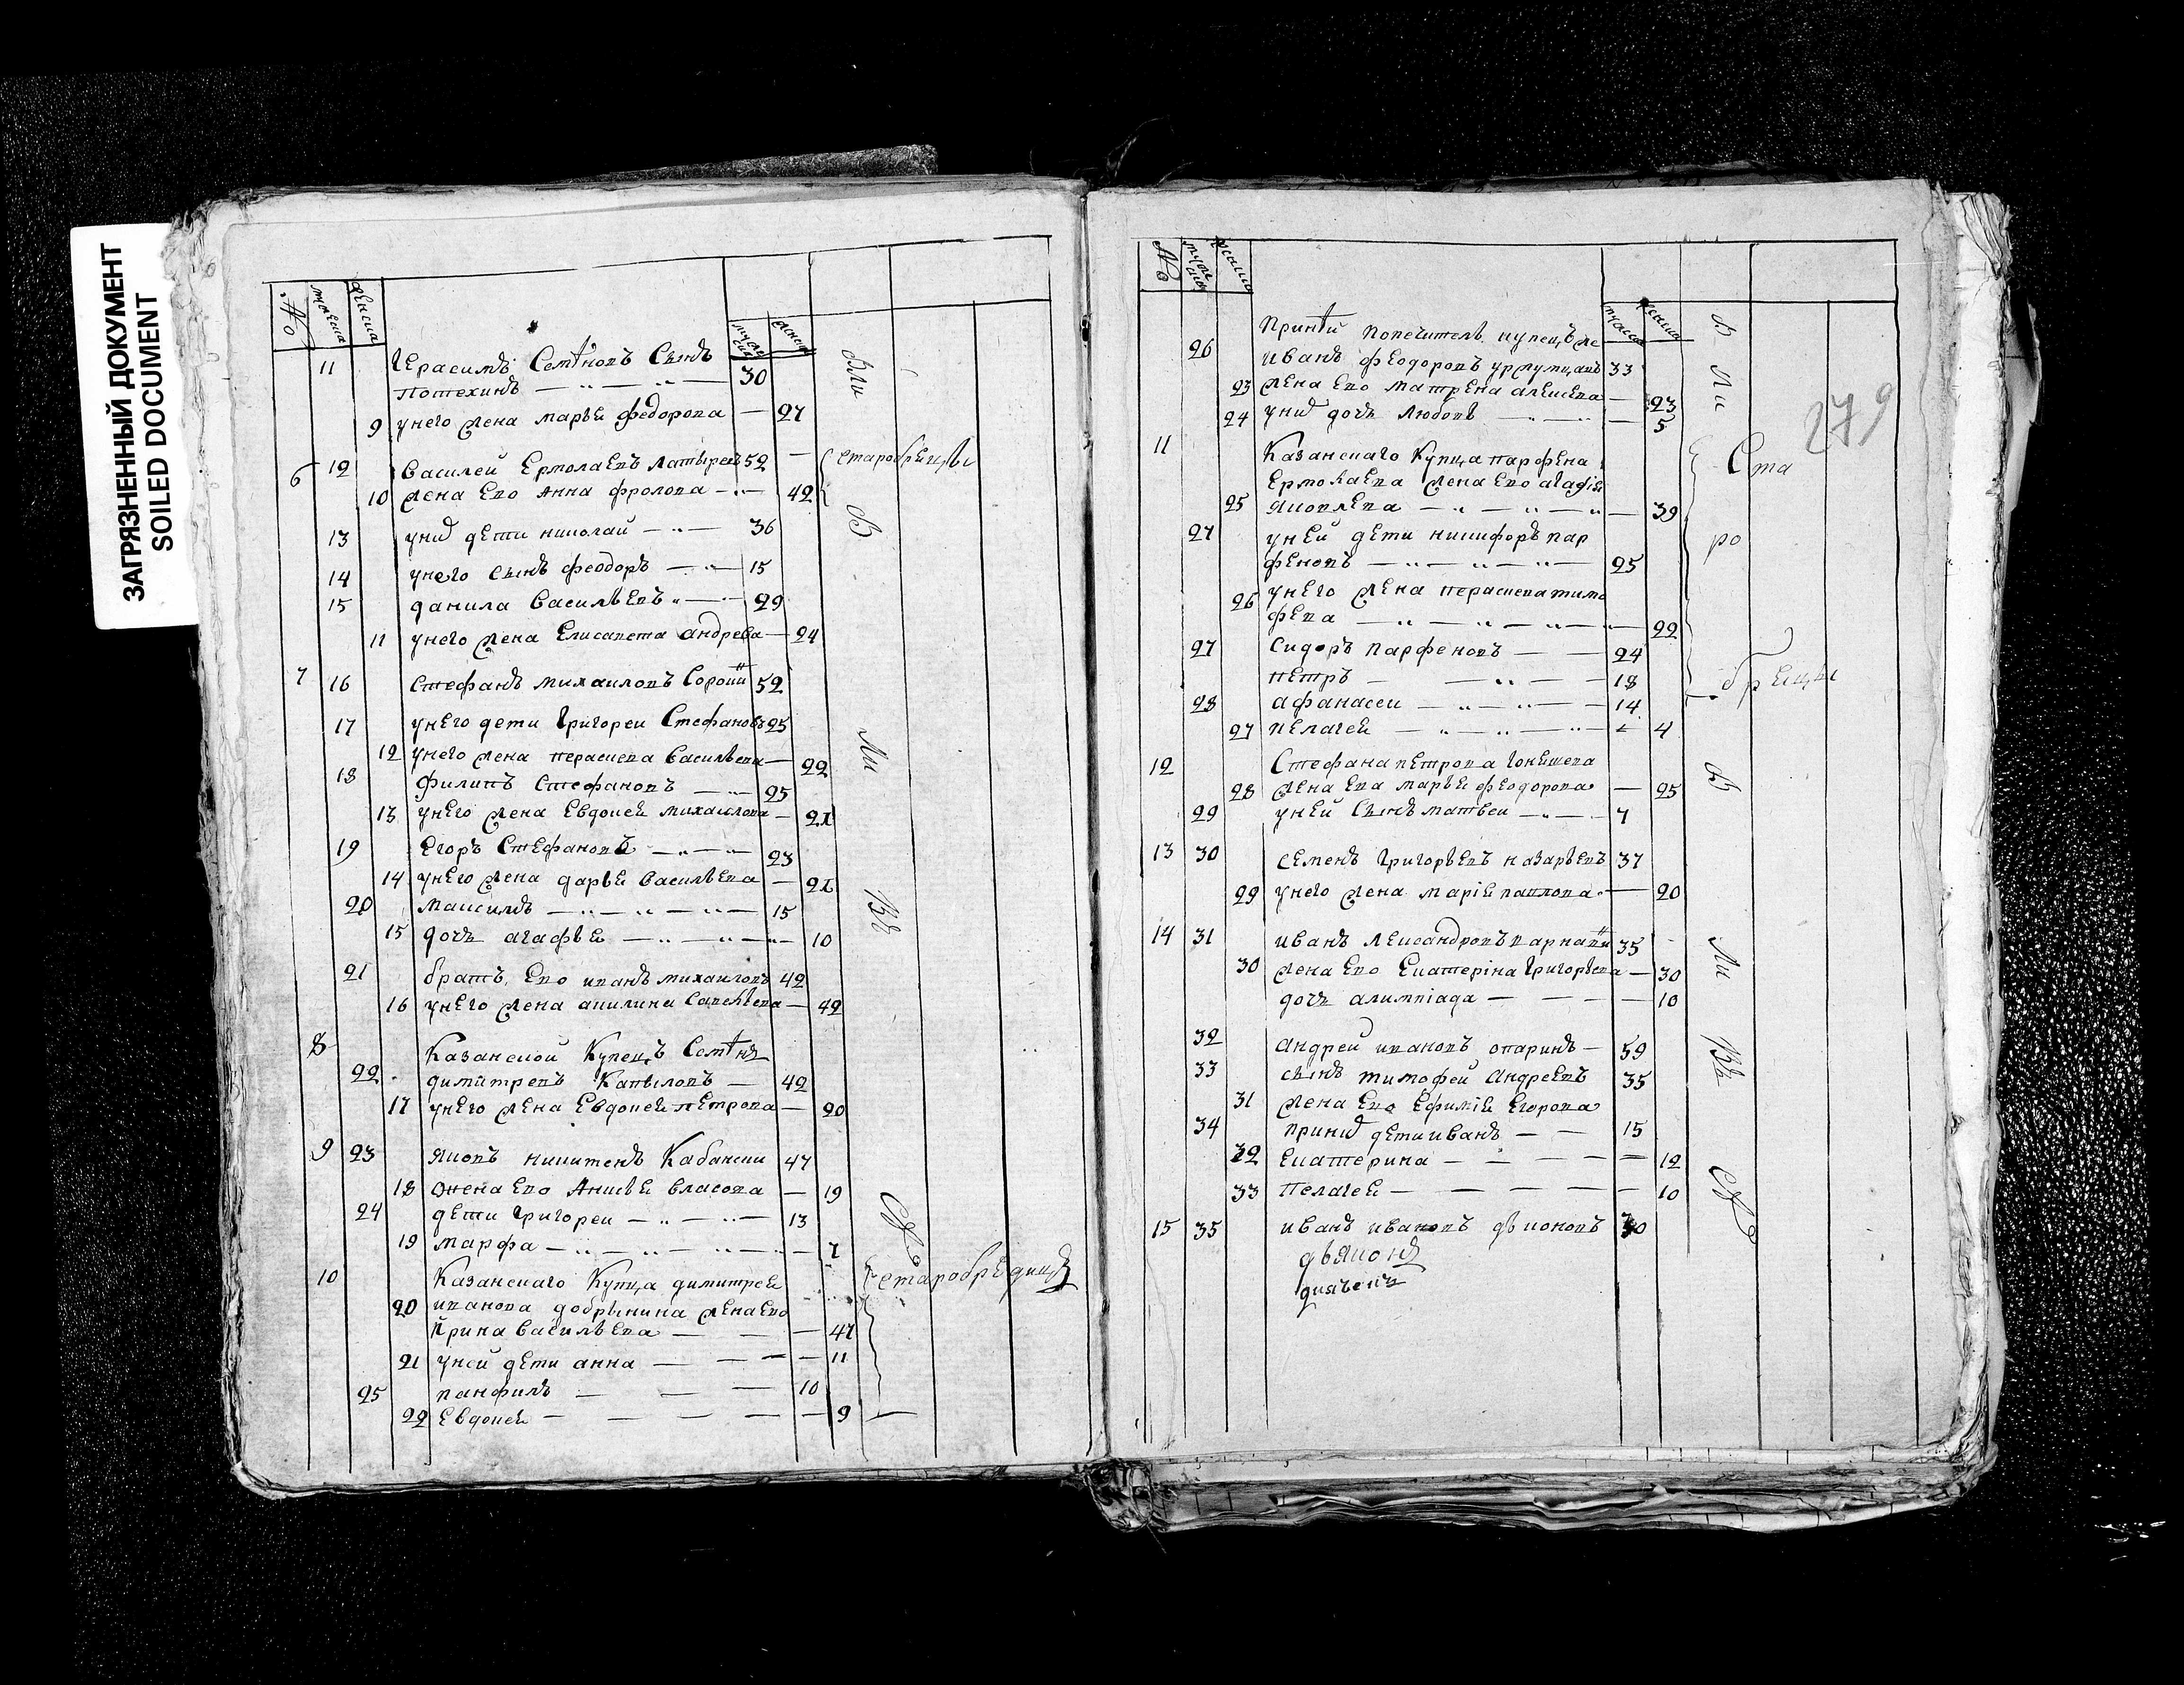 ЗАГРЯЗНЕННЫЙ ДОКУМЕНТ
SOILED DOCUMENT
№
11 Герасимъ Семѣновъ Сынъ
Потехинъ — 30
9 унего жена марья федорова — 27
6 12 Василей Ермолаевъ Латыревъ 52 — старобрецы
10 жена Ево Анна фролова — 42
13 унихъ дети николай — 36
14 унего сынъ феодоръ — 15
15 данила Васильевъ — 29
11 унего жена Елисавета андрева — 24
7 16 Стефанъ михаиловъ 52
17 унего дети Григореи Стефановъ 25
12 унего жена параскева Васильева — 22
18 филипъ Стефановъ — 25
13 унего жена Евдокея михаилова — 21
19 Егоръ Стефановъ — 23
14 унего жена дарья Васильева — 21
20 максимъ — 15
15 дочь агафья — 10
21 братъ Ево иванъ михаиловъ 42
16 унего жена акилина Савельева — 42
8 Казанской Купецъ Семѣнъ
22 димитревъ Капыловъ — 42
17 унего жена Евдокея петрова — 20
9 23 яковъ никитенъ Кабански 47
18 жена Ево Анисья власова — 19
24 дети Григореи — 13
19 марфа — 7
10 Казанскаго Купца димитрея старобредицъ
20 иванова добрынина жена Ево
ирина Васильева — 47
21 уней дети анна — 11
25 панфилъ — 10
22 Евдокея — 9
В Ли В Ли
№
279
При попечитель купецъ же
26 Иванъ феодоровъ 33
23 жена Ево матрена алексева — 23
24 унихъ дочь Любовь — 5
11 Казанскаго Купца парфена Ста
Ермолаева жена Ево агафiя
25 яковлева — 39
27 уней дети никифоръ пар ро
феновъ — 25
26 унего жена параскева тимо
феева — 22
27 Сидоръ Парфеновъ — 24
петръ — 18 брецы
28 афанасеи — 14
27 пелагея — 4
12 Стефана петрова
28 жена Ева марья феодорова — 25
29 уней Сынъ матвеи — 7
13 30 семенъ Григорьевъ назарьевъ 37
29 унего жена марiя павлова — 20
14 31 иванъ 35
30 жена Ево Екатерiна Григорьева — 30
дочь алимпiада — 10
32 андреи ивановъ опаринъ — 59
33 сынъ тимофеи Андреевъ 35
31 жена Ево Ефимiя Егорова
34 принихъ дети иванъ — 15
32 Екатерина — 12
33 Пелагея — 10
15 35 иванъ ивановъ дьяконовъ 30
дьяконъ